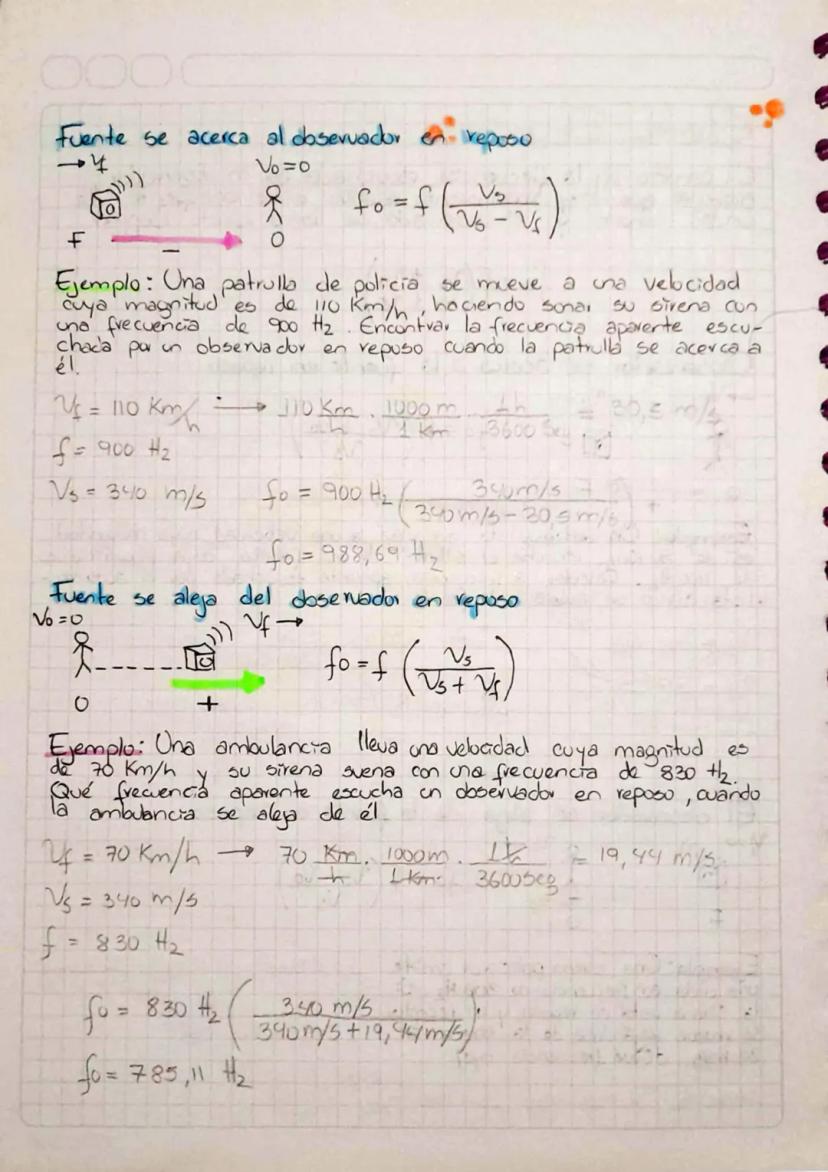 Fuente se acerca al observador en reposo
→ Vf Vo = 0
fo = f (Vs / Vs - Vf)
F - O
Ejemplo: Una patrulla de policía se mueve a una velocidad
cuya magnitud es de 110 Km/h, haciendo sonar su sirena con
una frecuencia de 900 Hz. Encontrar la frecuencia aparente escu-
chada por un observador en reposo cuando la patrulla se acerca a
él.
Vf = 110 Km/h → 110 Km/h . 1000 m/1 Km . 1h/3600 Seg = 30,5 m/s
f = 900 Hz
Vs = 340 m/s fo = 900 Hz (340 m/s / 340 m/s - 30,5 m/s)
fo = 988,69 Hz
Fuente se aleja del observador en reposo
Vo = 0 Vf →
fo = f (Vs / Vs + Vf)
O +
Ejemplo: Una ambulancia lleva una velocidad cuya magnitud es
de 70 Km/h y su sirena suena con una frecuencia de 830 Hz.
Qué frecuencia aparente escucha un observador en reposo, cuando
la ambulancia se aleja de él.
Vf = 70 Km/h → 70 Km/h . 1000m/1Km . 1h/3600seg = 19,44 m/s
Vs = 340 m/s
f = 830 Hz
fo = 830 Hz (340 m/s / 340 m/s + 19,44 m/s)
fo = 785,11 Hz